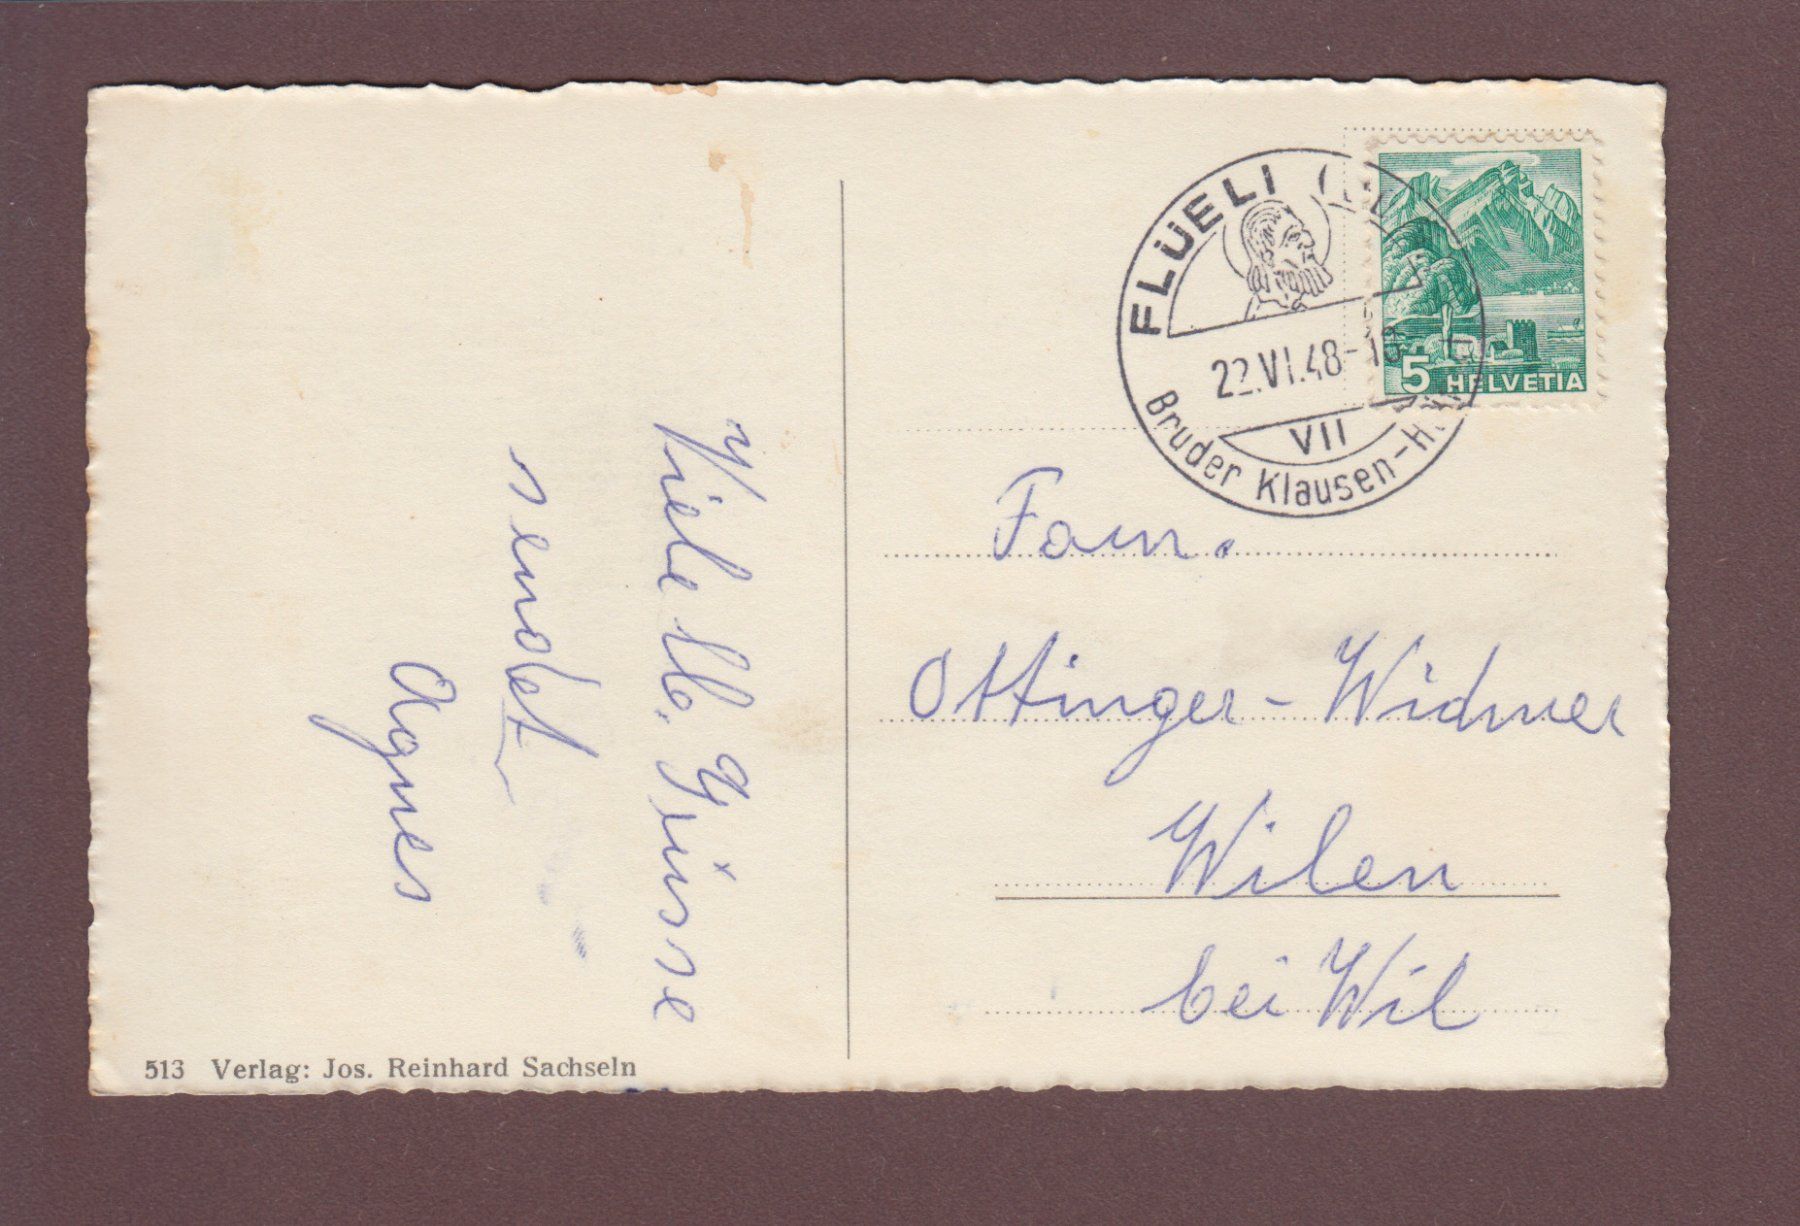 Viele lb. Grüsse
sendet
Agnes
513 Verlag: Jos. Reinhard Sachseln
FLÜELI
22.VI.48-18
VII
Bruder Klausen-
5 HELVETIA
Fam.
Ottinger-Widmer
Wilen
bei Wil